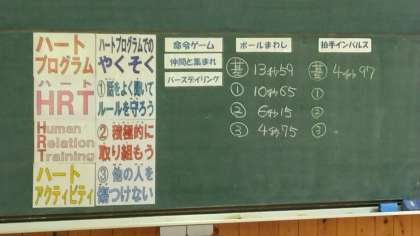 ハート
プログラム
ハート
HRT
Human
Relation
Training
ハート
アクティビティ
ハートプログラムでの
やくそく
①話をよく聞いて
ルールを守ろう
②積極的に
取り組もう
③他の人を
傷つけない
命令ゲーム
仲間と集まれ
バースデイリング
ボールまわし
基 13秒59
① 10秒65
② 6秒15
③ 4秒75
拍手インパルス
基 4秒97
①
②
③